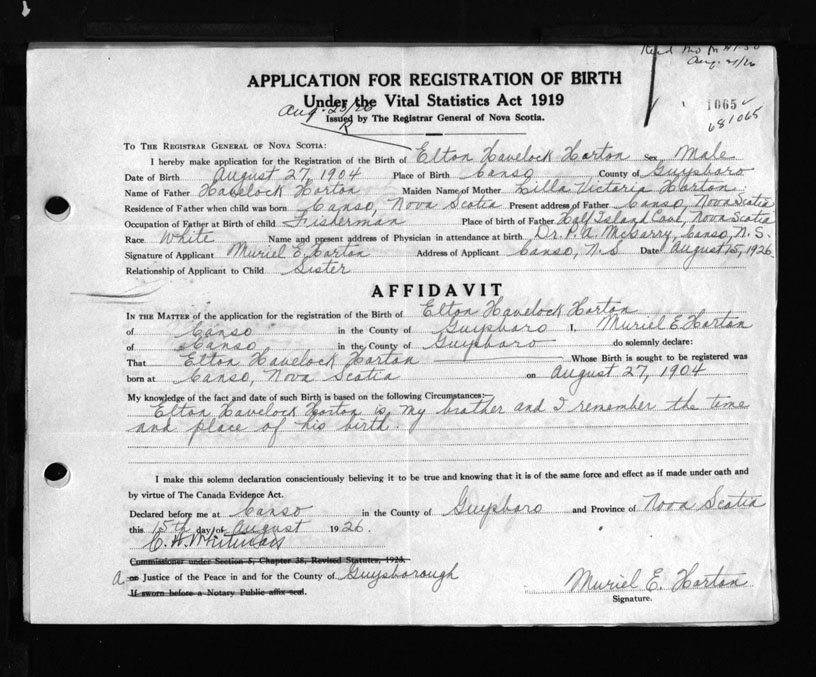 Aug. 21/26
APPLICATION FOR REGISTRATION OF BIRTH
Under the Vital Statistics Act 1919
Aug. 23/26
1065
Issued by The Registrar General of Nova Scotia.
681065
TO THE REGISTRAR GENERAL OF NOVA SCOTIA:
I hereby make application for the Registration of the Birth of Elton Havelock Horton Sex Male
Date of Birth August 27, 1904 Place of Birth Canso County of Guysboro
Name of Father Havelock Horton Maiden Name of Mother Lilla Victoria Horton
Residence of Father when child was born Canso, Nova Scotia Present address of Father Canso, Nova Scotia
Occupation of Father at Birth of child Fisherman Place of birth of Father Half Island Cove, Nova Scotia
Race White Name and present address of Physician in attendance at birth Dr. P. A. McGarry, Canso, N. S.
Signature of Applicant Muriel E. Horton Address of Applicant Canso, N. S Date August 15, 1926.
Relationship of Applicant to Child Sister
AFFIDAVIT
IN THE MATTER of the application for the registration of the Birth of Elton Havelock Horton
of Canso in the County of Guysboro I, Muriel E. Horton
of Canso in the County of Guysboro do solemnly declare:
That Elton Havelock Horton Whose Birth is sought to be registered was
born at Canso, Nova Scotia on August 27, 1904
My knowledge of the fact and date of such Birth is based on the following Circumstances:-
Elton Havelock Horton is my brother and I remember the time
and place of his birth.
I make this solemn declaration conscientiously believing it to be true and knowing that it is of the same force and effect as if made under oath and
by virtue of The Canada Evidence Act.
Declared before me at Canso in the County of Guysboro and Province of Nova Scotia
this 15th day of August 1926.
C. H. Whitman
Commissioner under Section 5, Chapter 38, Revised Statutes, 1923.
a or Justice of the Peace in and for the County of Guysborough
If sworn before a Notary Public affix seal.
Muriel E. Horton
Signature.